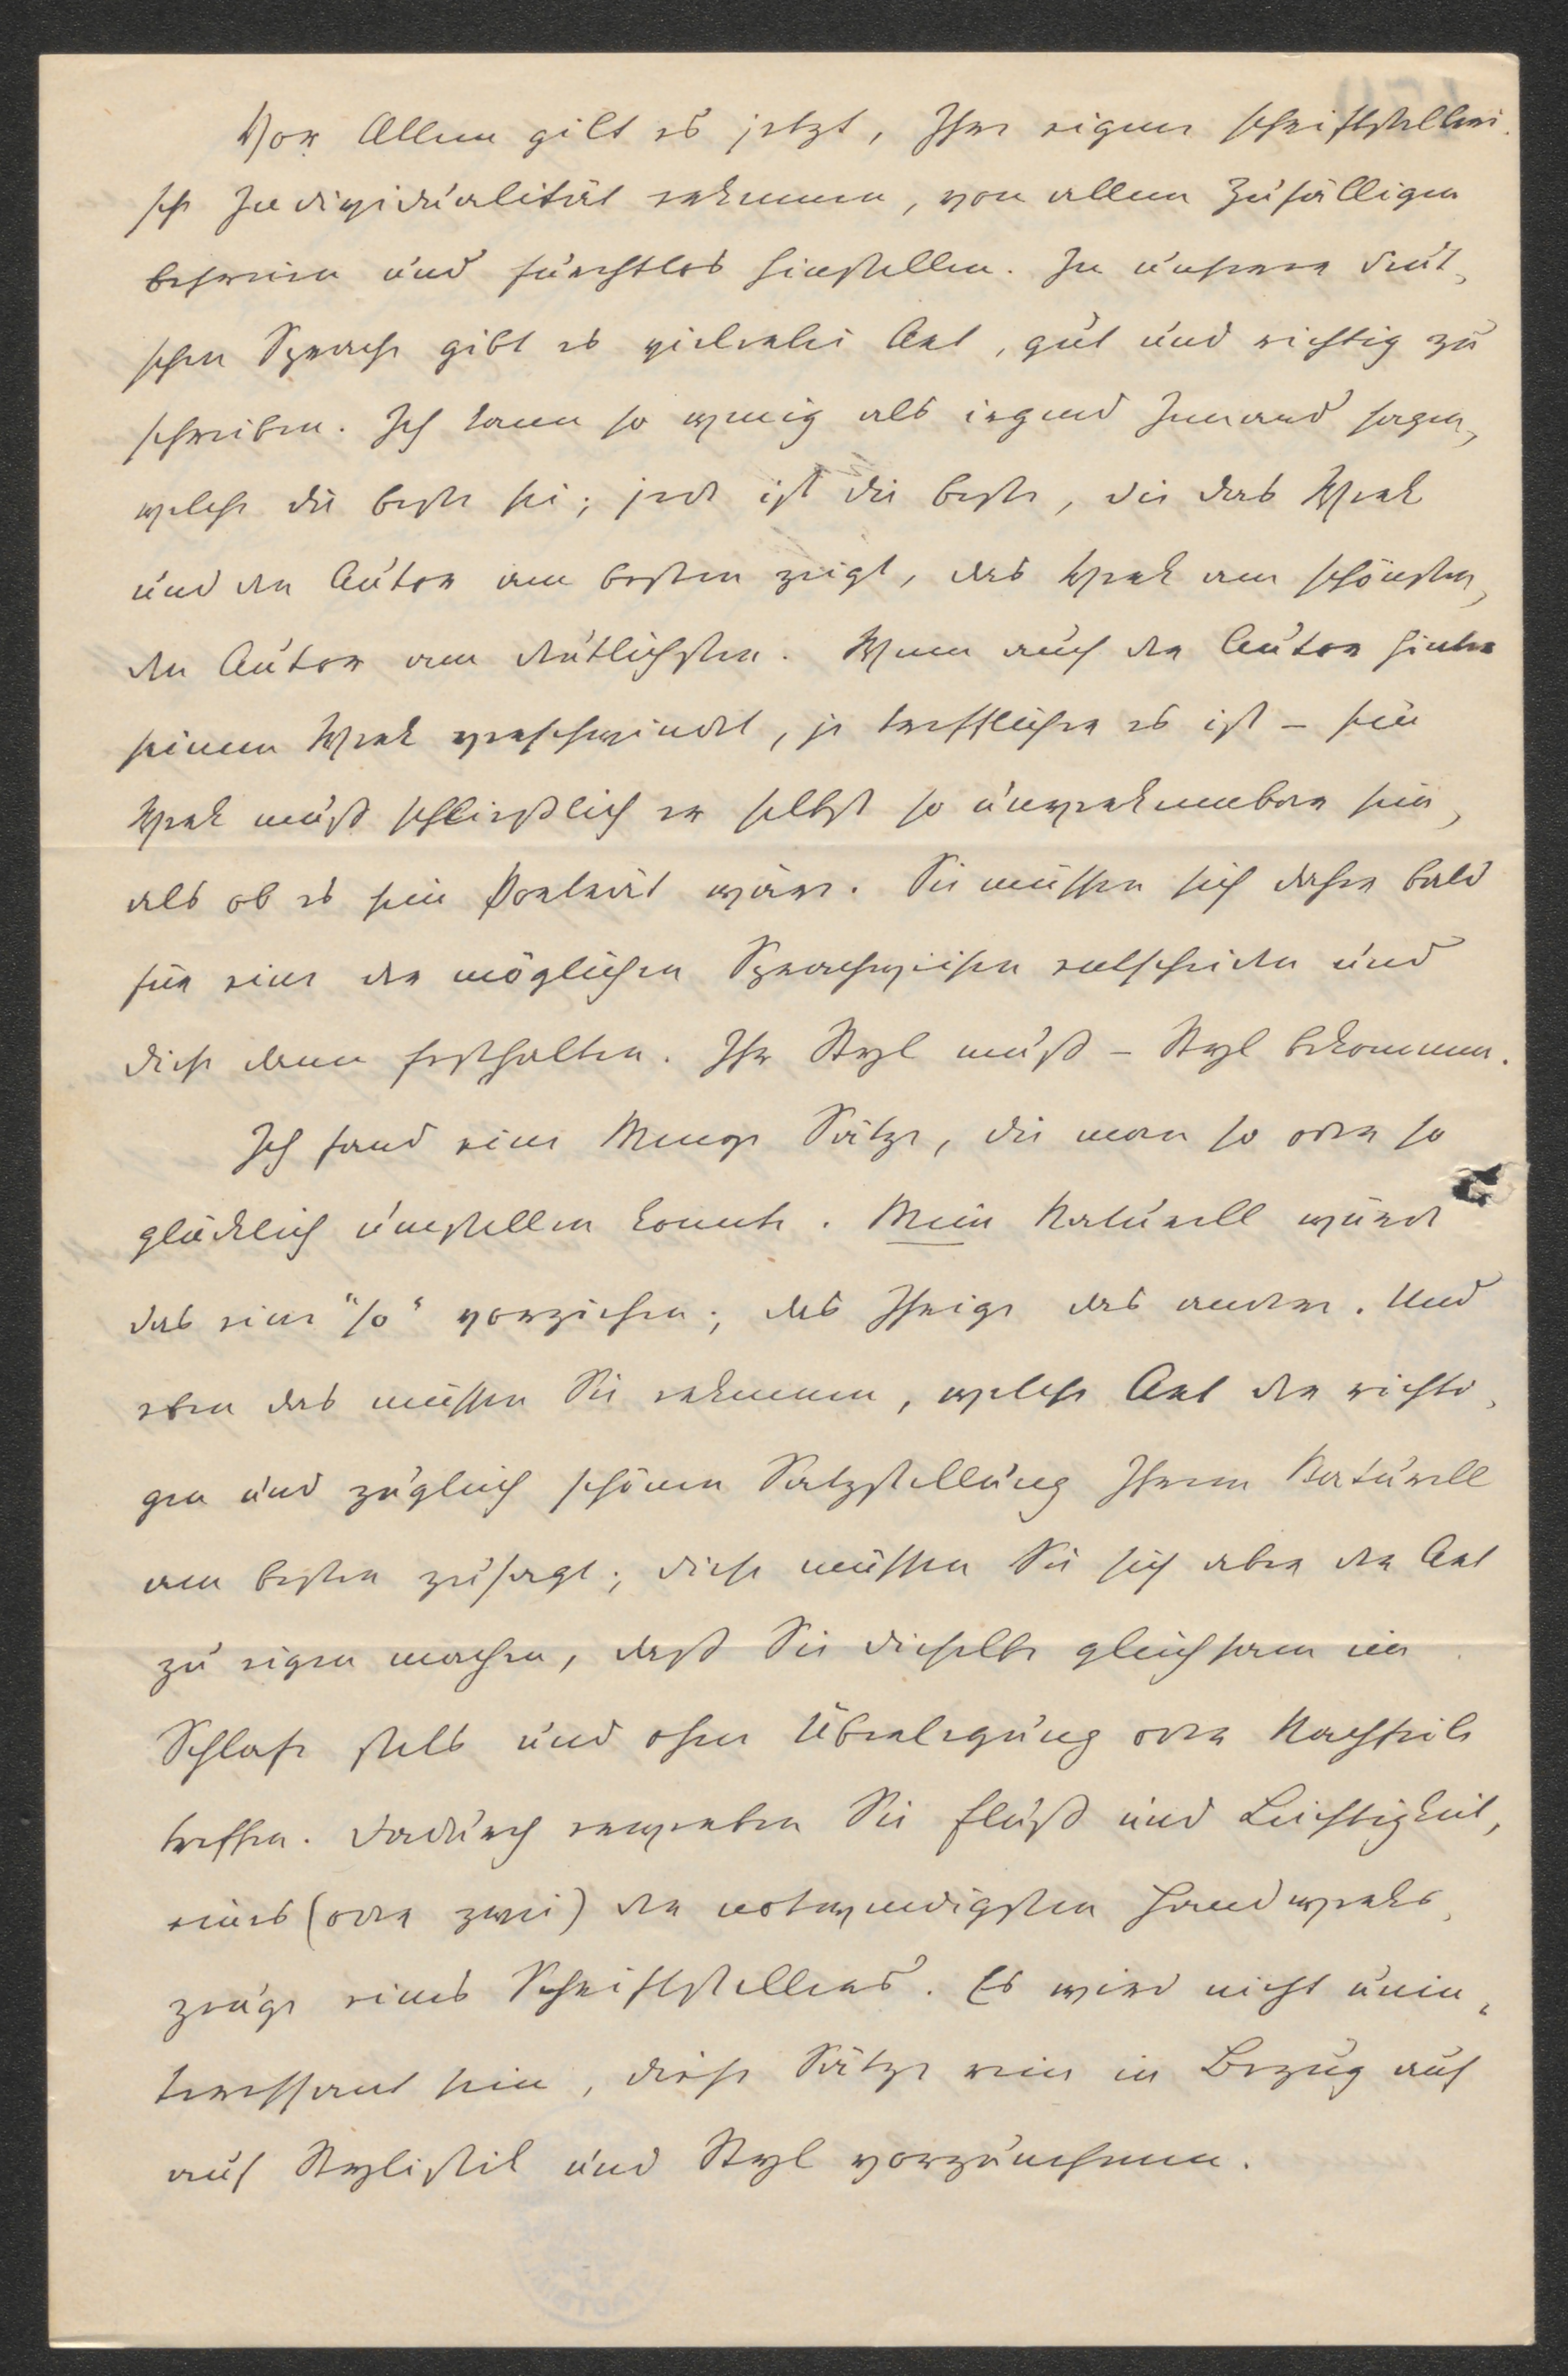 Vor Allem gilt es jetzt, Ihre eigene schriftstelleri-
sche Individualität erkennen, von allem Zufälligen
befreien und furchtlos hinstellen. In unserer deut-
schen Sprache gibt es vielerlei Art, gut und richtig zu
schreiben. Ich kann so wenig als irgend Jemand sagen,
welche die beste sei; jede ist die beste, die das Werk
und den Autor am besten zeigt, das Werk am schönsten,
den Autor am deutlichsten. Wenn auch der Autor hinter
seinem Werk verschwindet, je trefflicher es ist – sein
Werk muß schließlich er selbst so unverkennbar sein,
als ob es sein Porträt wäre. Sie müssen sich daher bald
für eine der möglichen Sprachweisen entscheiden und
diese dann festhalten. Ihr Styl muß – Styl bekommen.
Ich fand eine Menge Sätze, die man so oder so
glücklich umstellen konnte. Mein Naturell würde
das eine "so" vorziehen; das Ihrige das andere. Und
eben das müssen Sie erkennen, welche Art der richti-
gen und zugleich schönen Satzstellung Ihrem Naturell
am besten zusagt; diese müssen Sie sich aber der Art
zu eigen machen, daß Sie dieselbe gleichsam im
Schlafe stets und ohne Überlegung oder Nachfeile
treffen. Dadurch erwerben Sie Fluß und Leichtigkeit,
eines (oder zwei) der notwendigsten Handwerks-
zeuge eines Schriftstellers. Es wird nicht unin-
teressant sein, diese Sätze rein in Bezug auf
auf Stylistik und Styl vorzunehmen.